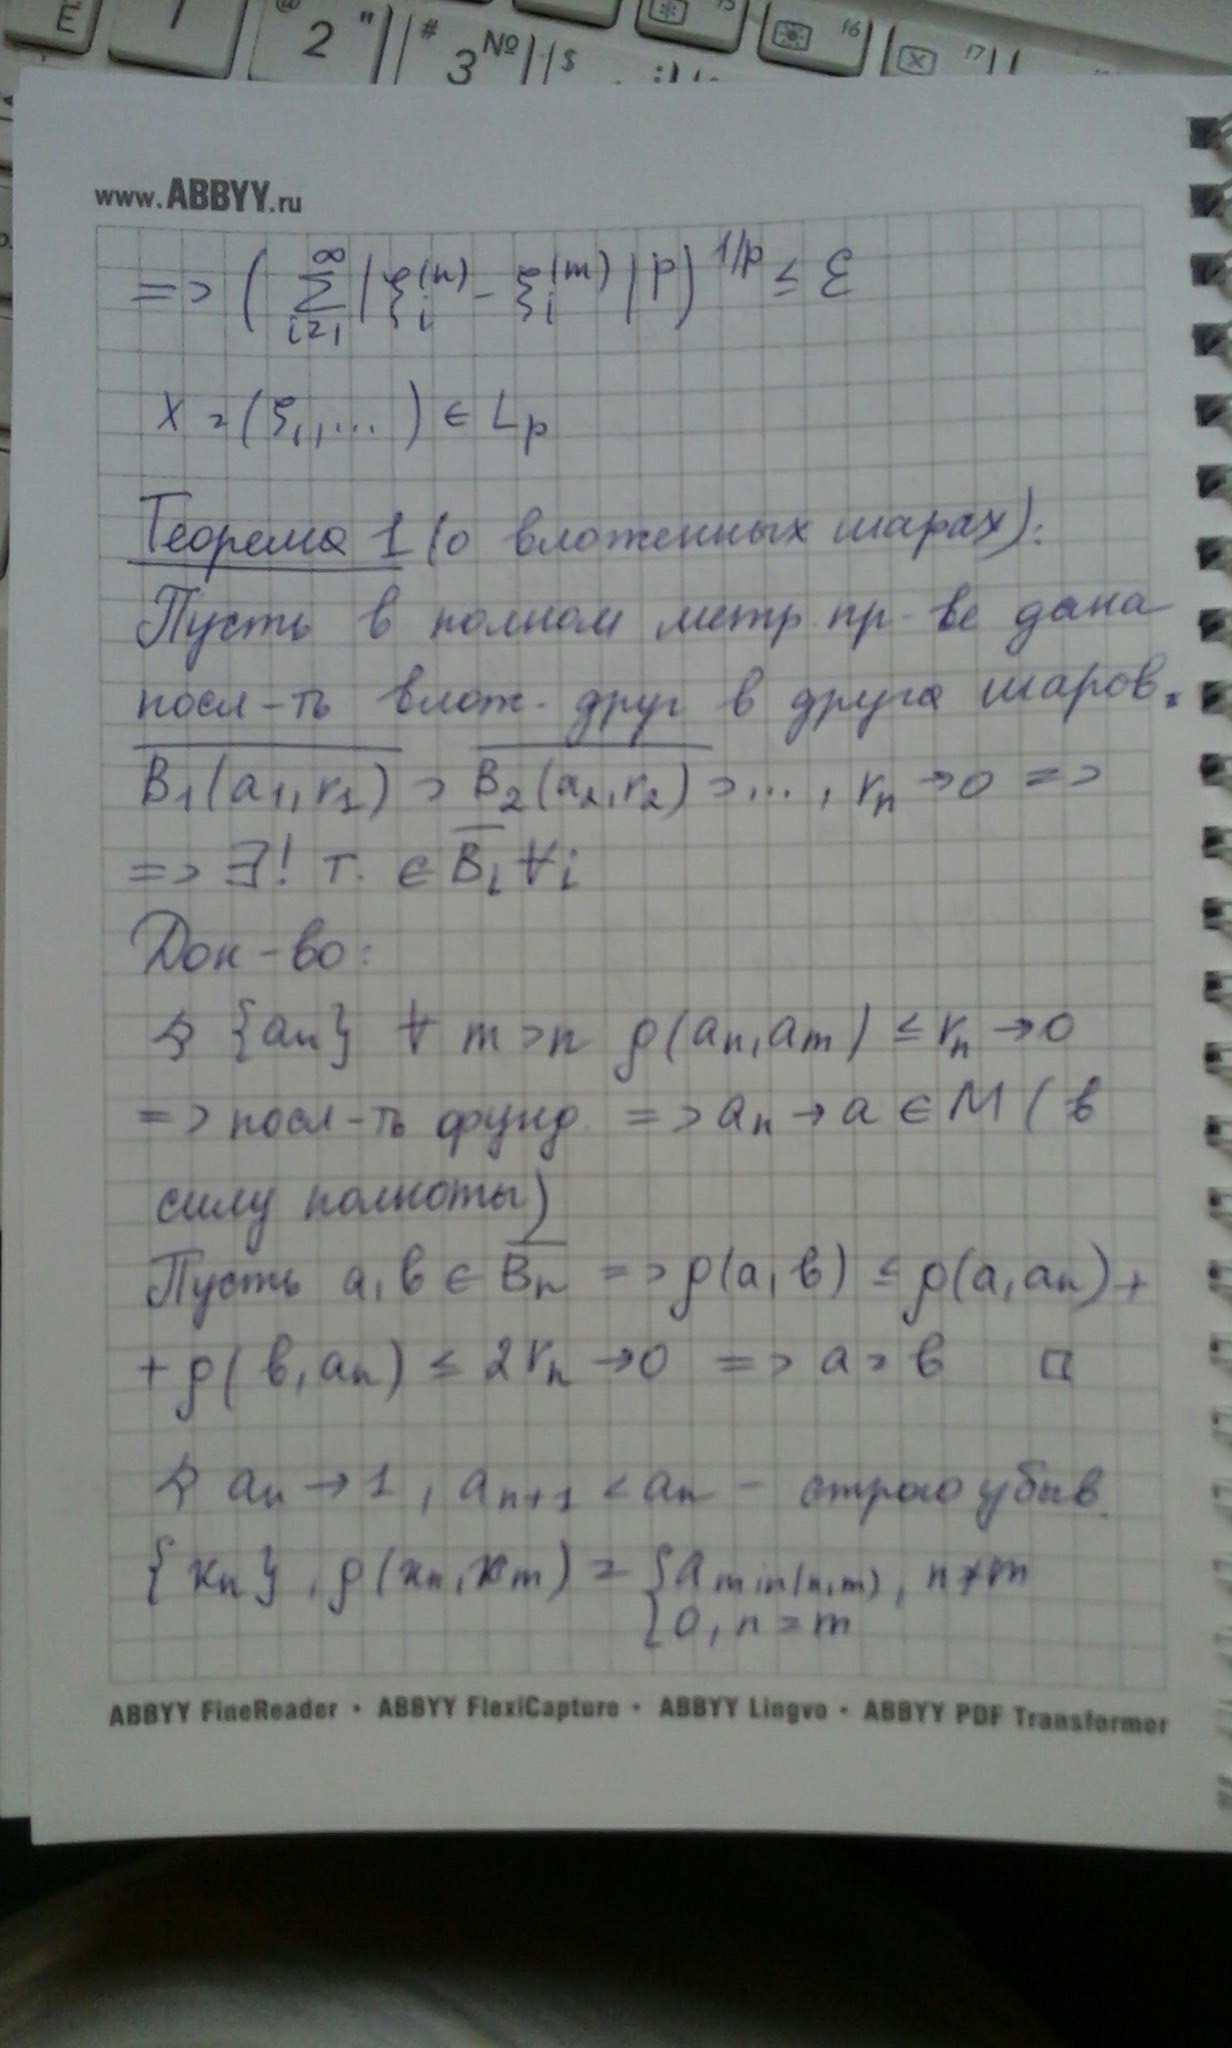 E 1 @ 2 " # 3 № $ 15 16 17
www.ABBYY.ru
=> ( ∑_{i=1}^{∞} | ξ_i^{(n)} - ξ_i^{(m)} | p )^{1/p} ≤ ε
x = (ξ_1, ...) ∈ L_p
Теорема 1 (о вложенных шарах):
Пусть в полном метр. пр-ве дана
посл-ть влож. друг в друга шаров.
B̅_1(a_1, r_1) ⊃ B̅_2(a_2, r_2) ⊃ ..., r_n → 0 =>
=> ∃! т. ∈ B̅_i ∀i
Док-во:
{a_n} ∀ m > n ρ(a_n, a_m) ≤ r_n → 0
=> посл-ть фунд. => a_n → a ∈ M (в
силу полноты)
Пусть a, b ∈ B̅_n => ρ(a, b) ≤ ρ(a, a_n) +
+ ρ(b, a_n) ≤ 2r_n → 0 => a = b □
a_n → 1, a_{n+1} < a_n - строго убыв.
{x_n}, ρ(x_n, x_m) = { a_{min(n,m)}, n ≠ m
{ 0, n = m
ABBYY FineReader • ABBYY FlexiCapture • ABBYY Lingvo • ABBYY PDF Transformer